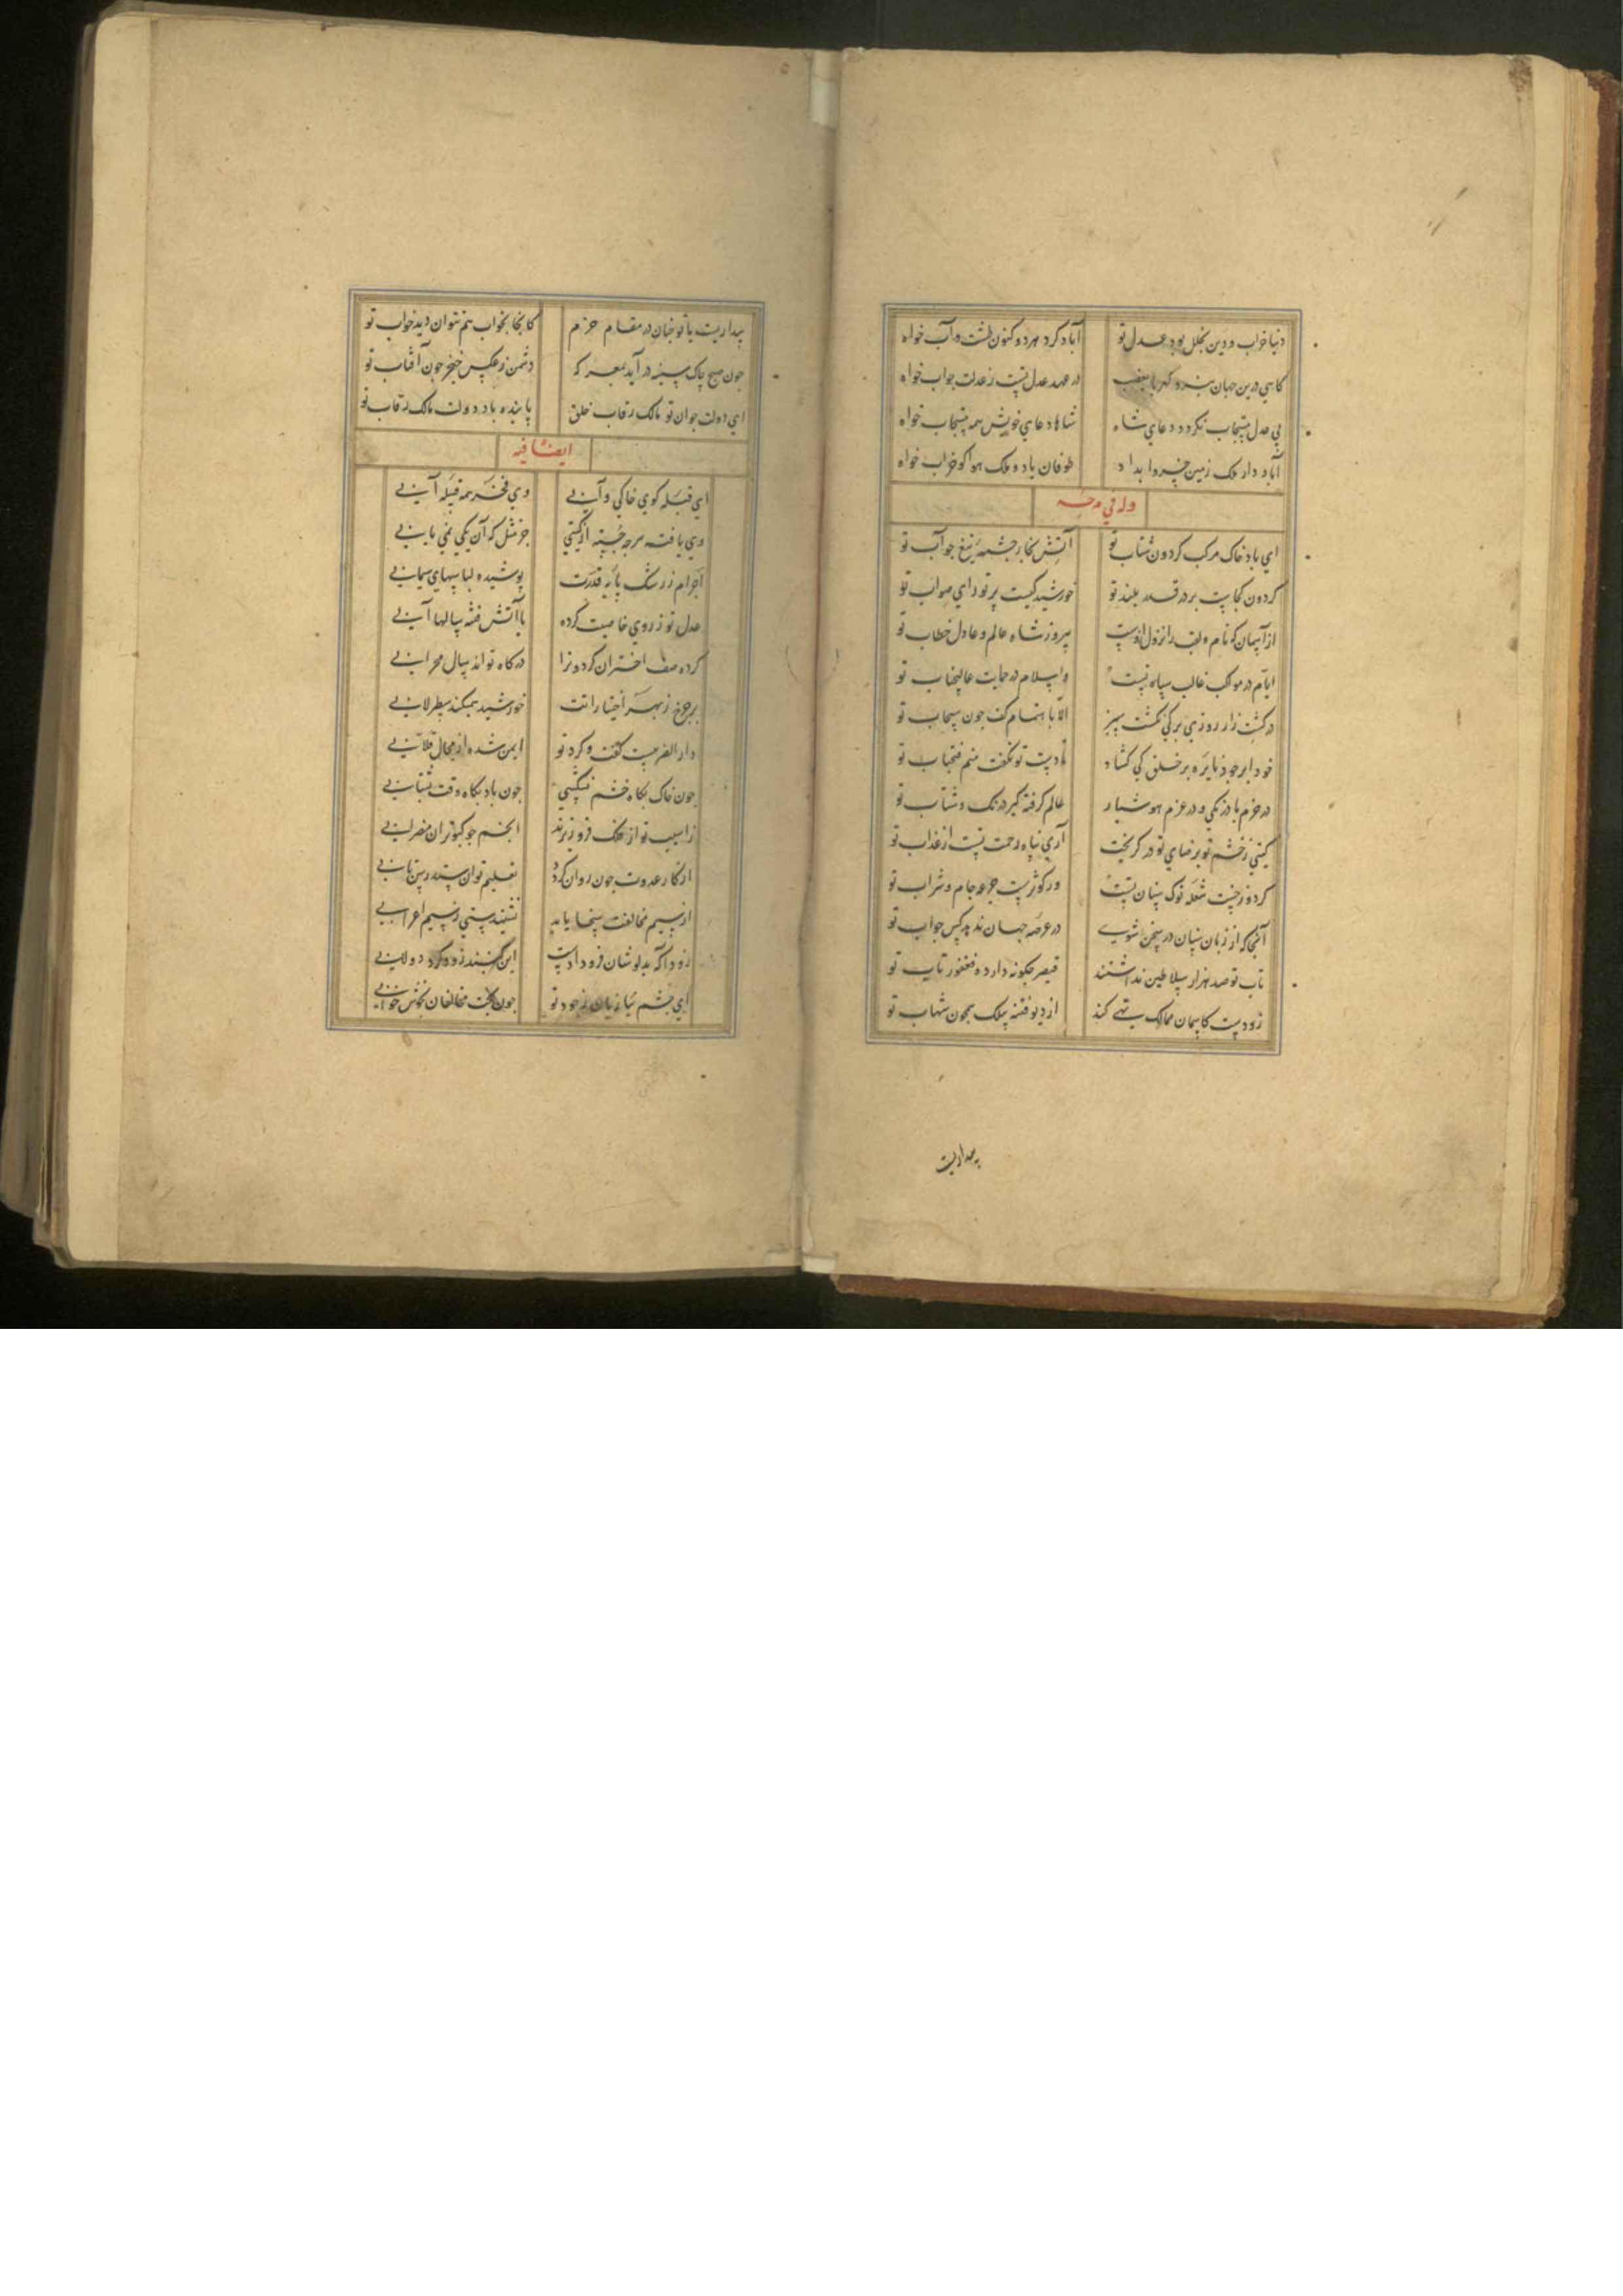 دنیا خراب و دین بخلل بود عدل تو آباد کرد هر دو کنون طشت و آب خواه
کاهی درین جهان نبرد کهربا بغصب در عهد عدل تست ز عدلت جواب خواه
بی عدل مستجاب نکردد دعای شاه شاها دعای خویش همه مستجاب خواه
آباد دار ملک زمین خسروا بداد طوفان باد و ملک هوا کو خراب خواه
وله فی مدحه
ای باد خاک مرکب کردون شتاب تو آتش بخار چشمه تیغ جو آب تو
کردون کجاست بر در قدر بلند تو خورشید کیست پرتو رای صواب تو
از آسمان که نام و لقب را نزول ازوست پیروز شاه عالم و عادل خطاب تو
ایام در مواکب غالب سپاه تست و اسلام در حمایت عالیجناب تو
در کشت زار روزی برکی نکشت سبز الا باهتمام کف جون سحاب تو
خود ابر جود نایره بر خلق کی کشاد تا دست تو نکفت منم فتحباب تو
در حزم با درنکی و در عزم هوشیار عالم کرفته کیر درنک و شتاب تو
کیتی ز خشم تو برضای تو در کریخت آری پناه رحمت تست از عذاب تو
کر دوزخست شعله نوک سنان تست ور کوثرست جرعه جام و شراب تو
آنجا که از زبان سنان در سخن شوی در عرصه جهان ندهد کس جواب تو
تاب تو صد هزار سلاطین نداشتند قیصر جکونه دارد و فغفور تاب تو
زودست کاسمان ممالک تهی کند از دیو فتنه بیلک همجون شهاب تو
بیداریست
بیداریست با تو جنان در مقام حزم کانجا بخواب هم نتوان دید خواب تو
جون صبح چاک سینه درآید بمعرکه دشمن ز عکس خنجر جون آفتاب تو
ای دولت جوان تو مالک رقاب خلق پاینده باد دولت مالک رقاب تو
ایضا فیه
ای قبله کوی خاکی و آبی وی فخر همه قبیله آبی
وی یافته هرجه جسته از کیتی جز مثل که آن یکی نمی یابی
اجرام ز رشک پایه قدرت پوشیده لباسهای سیمابی
عدل تو ز روی خاصیت کرده با آتش فتنه سالها آبی
کرده صف اختران کردونرا درکاه تو اند سال محرابی
بر چرخ ز بهر اختیارانت خورشید همیکند سطرلابی
دار الضربیست کفت و کرد تو ایمن شده از مجال قلابی
جون خاک بکاه خشم نشکیبی جون باد بکاه وقت بشتابی
ز اسیب تو از فلک فرو ریزند انجم جو کبوتران مضرابی
از کار عدوت جون روان کردد تعلیم توان ستد رسن تابی
از سیم مخالفت سخا یابد ننشیند سستی ز سیم اعرابی
زودا که بدلوشان فرو دادست این کنبد زود کرد دولابی
ای جشم نیازیان ز جود تو جون بخت مخالفان بخوش خوابی